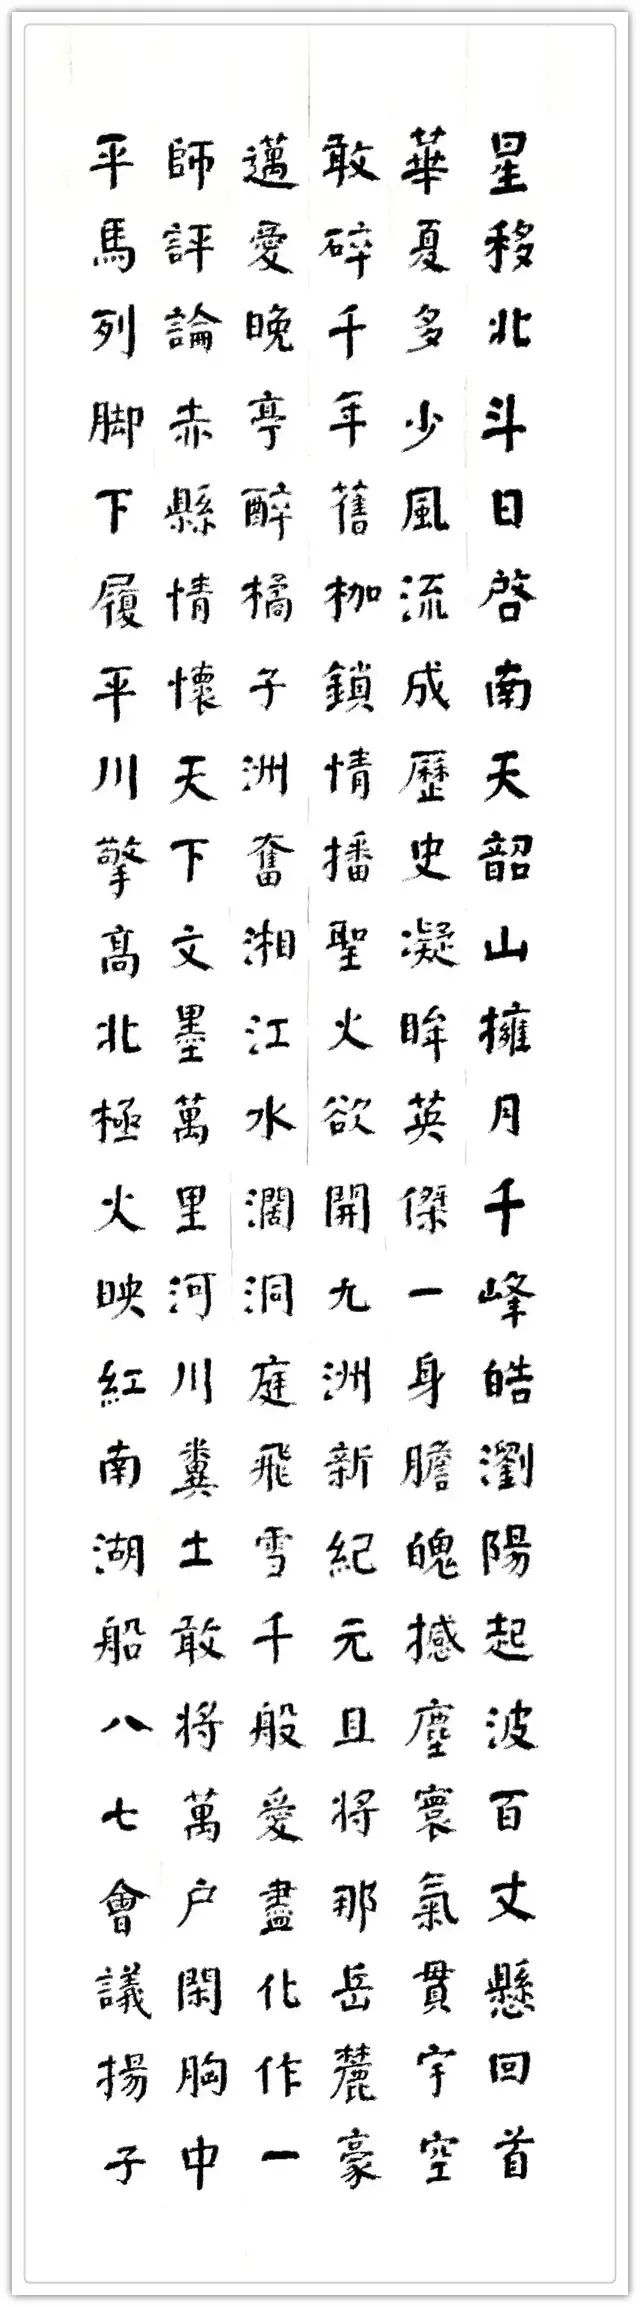 星移北斗日啓南天韶山擁月千峰皓瀏陽起波百丈懸回首
華夏多少風流成歷史凝眸英傑一身膽魄撼塵寰氣貫宇空
敢碎千年舊枷鎖情播聖火欲開九洲新紀元且將那岳麓豪
邁愛晚亭醉橘子洲奮湘江水濶洞庭飛雪千般愛盡化作一
師評論赤縣情懷天下文墨萬里河川糞土敢將萬户閑胸中
平馬列脚下履平川擎高北極火映紅南湖船八七會議揚子